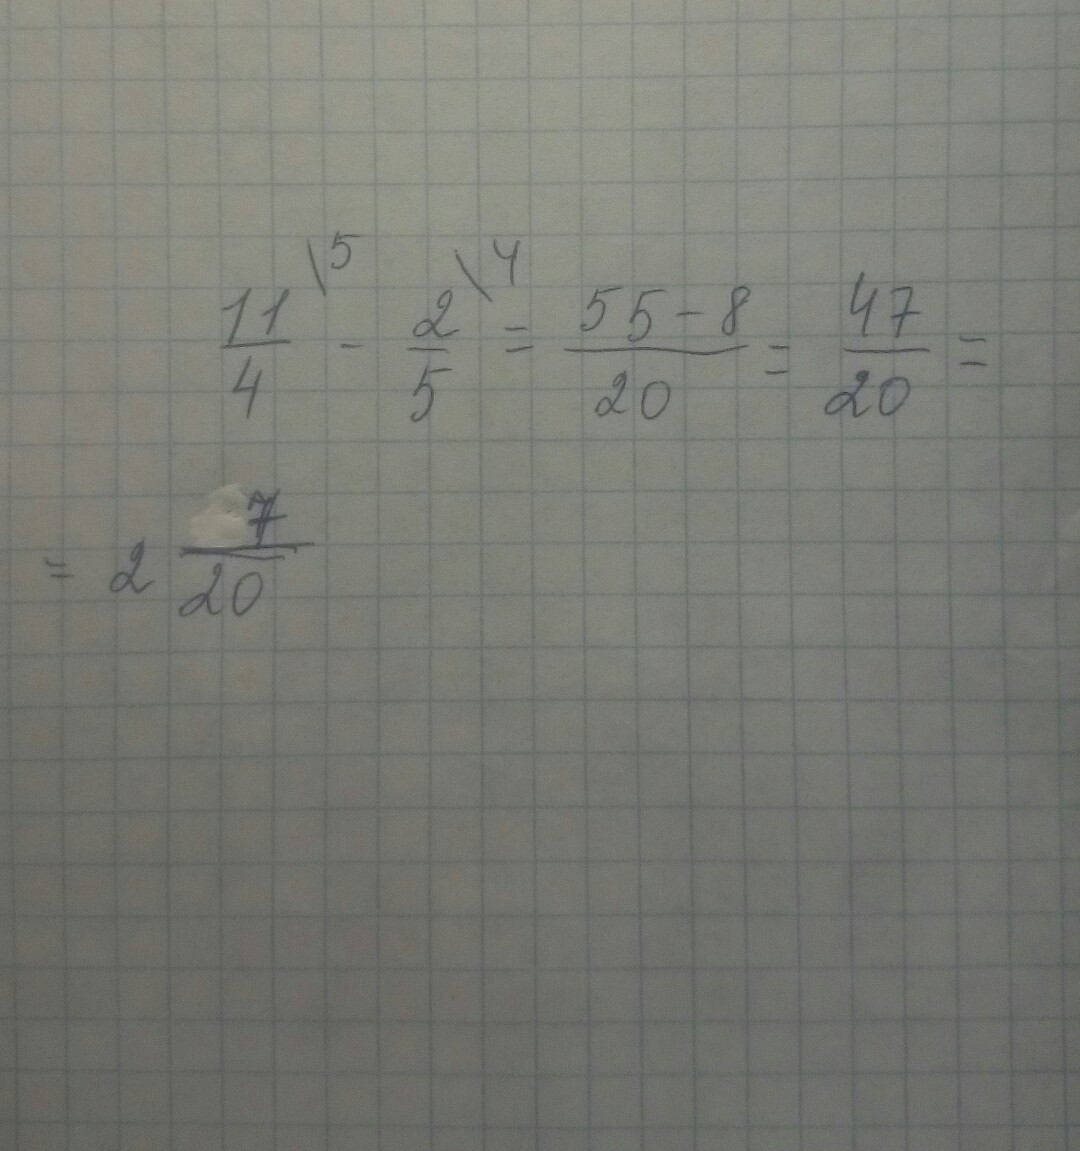 11/4 \5 - 2/5 \4 = 55-8/20 = 47/20 =
= 2 7/20